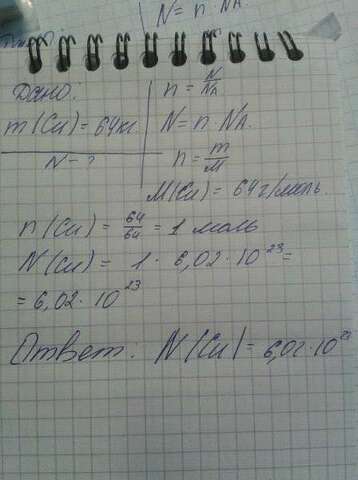 N = n · NA
Дано:
n = N/NA
m(Cu) = 64кг
N = n · NA.
N - ?
n = m/M
M(Cu) = 64 г/моль.
n(Cu) = 64/64 = 1 моль
N(Cu) = 1 · 6,02 · 10²³ =
= 6,02 · 10²³
Ответ: N(Cu) = 6,02 · 10²³